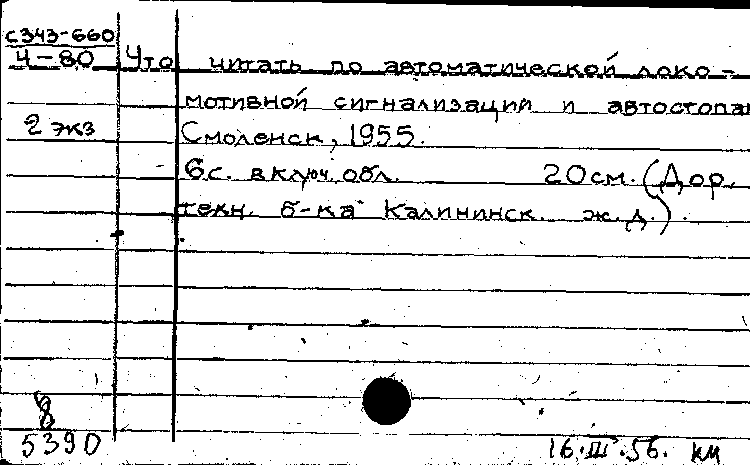 С343-660
4-80 Что читать по автоматической локо-
мотивной сигнализации и автостопам
2 экз Смоленск, 1955.
6с. включ. обл. 20см. (Дор.
техн. б-ка Калининск. ж.д.).
8
5390 16.III.56. км